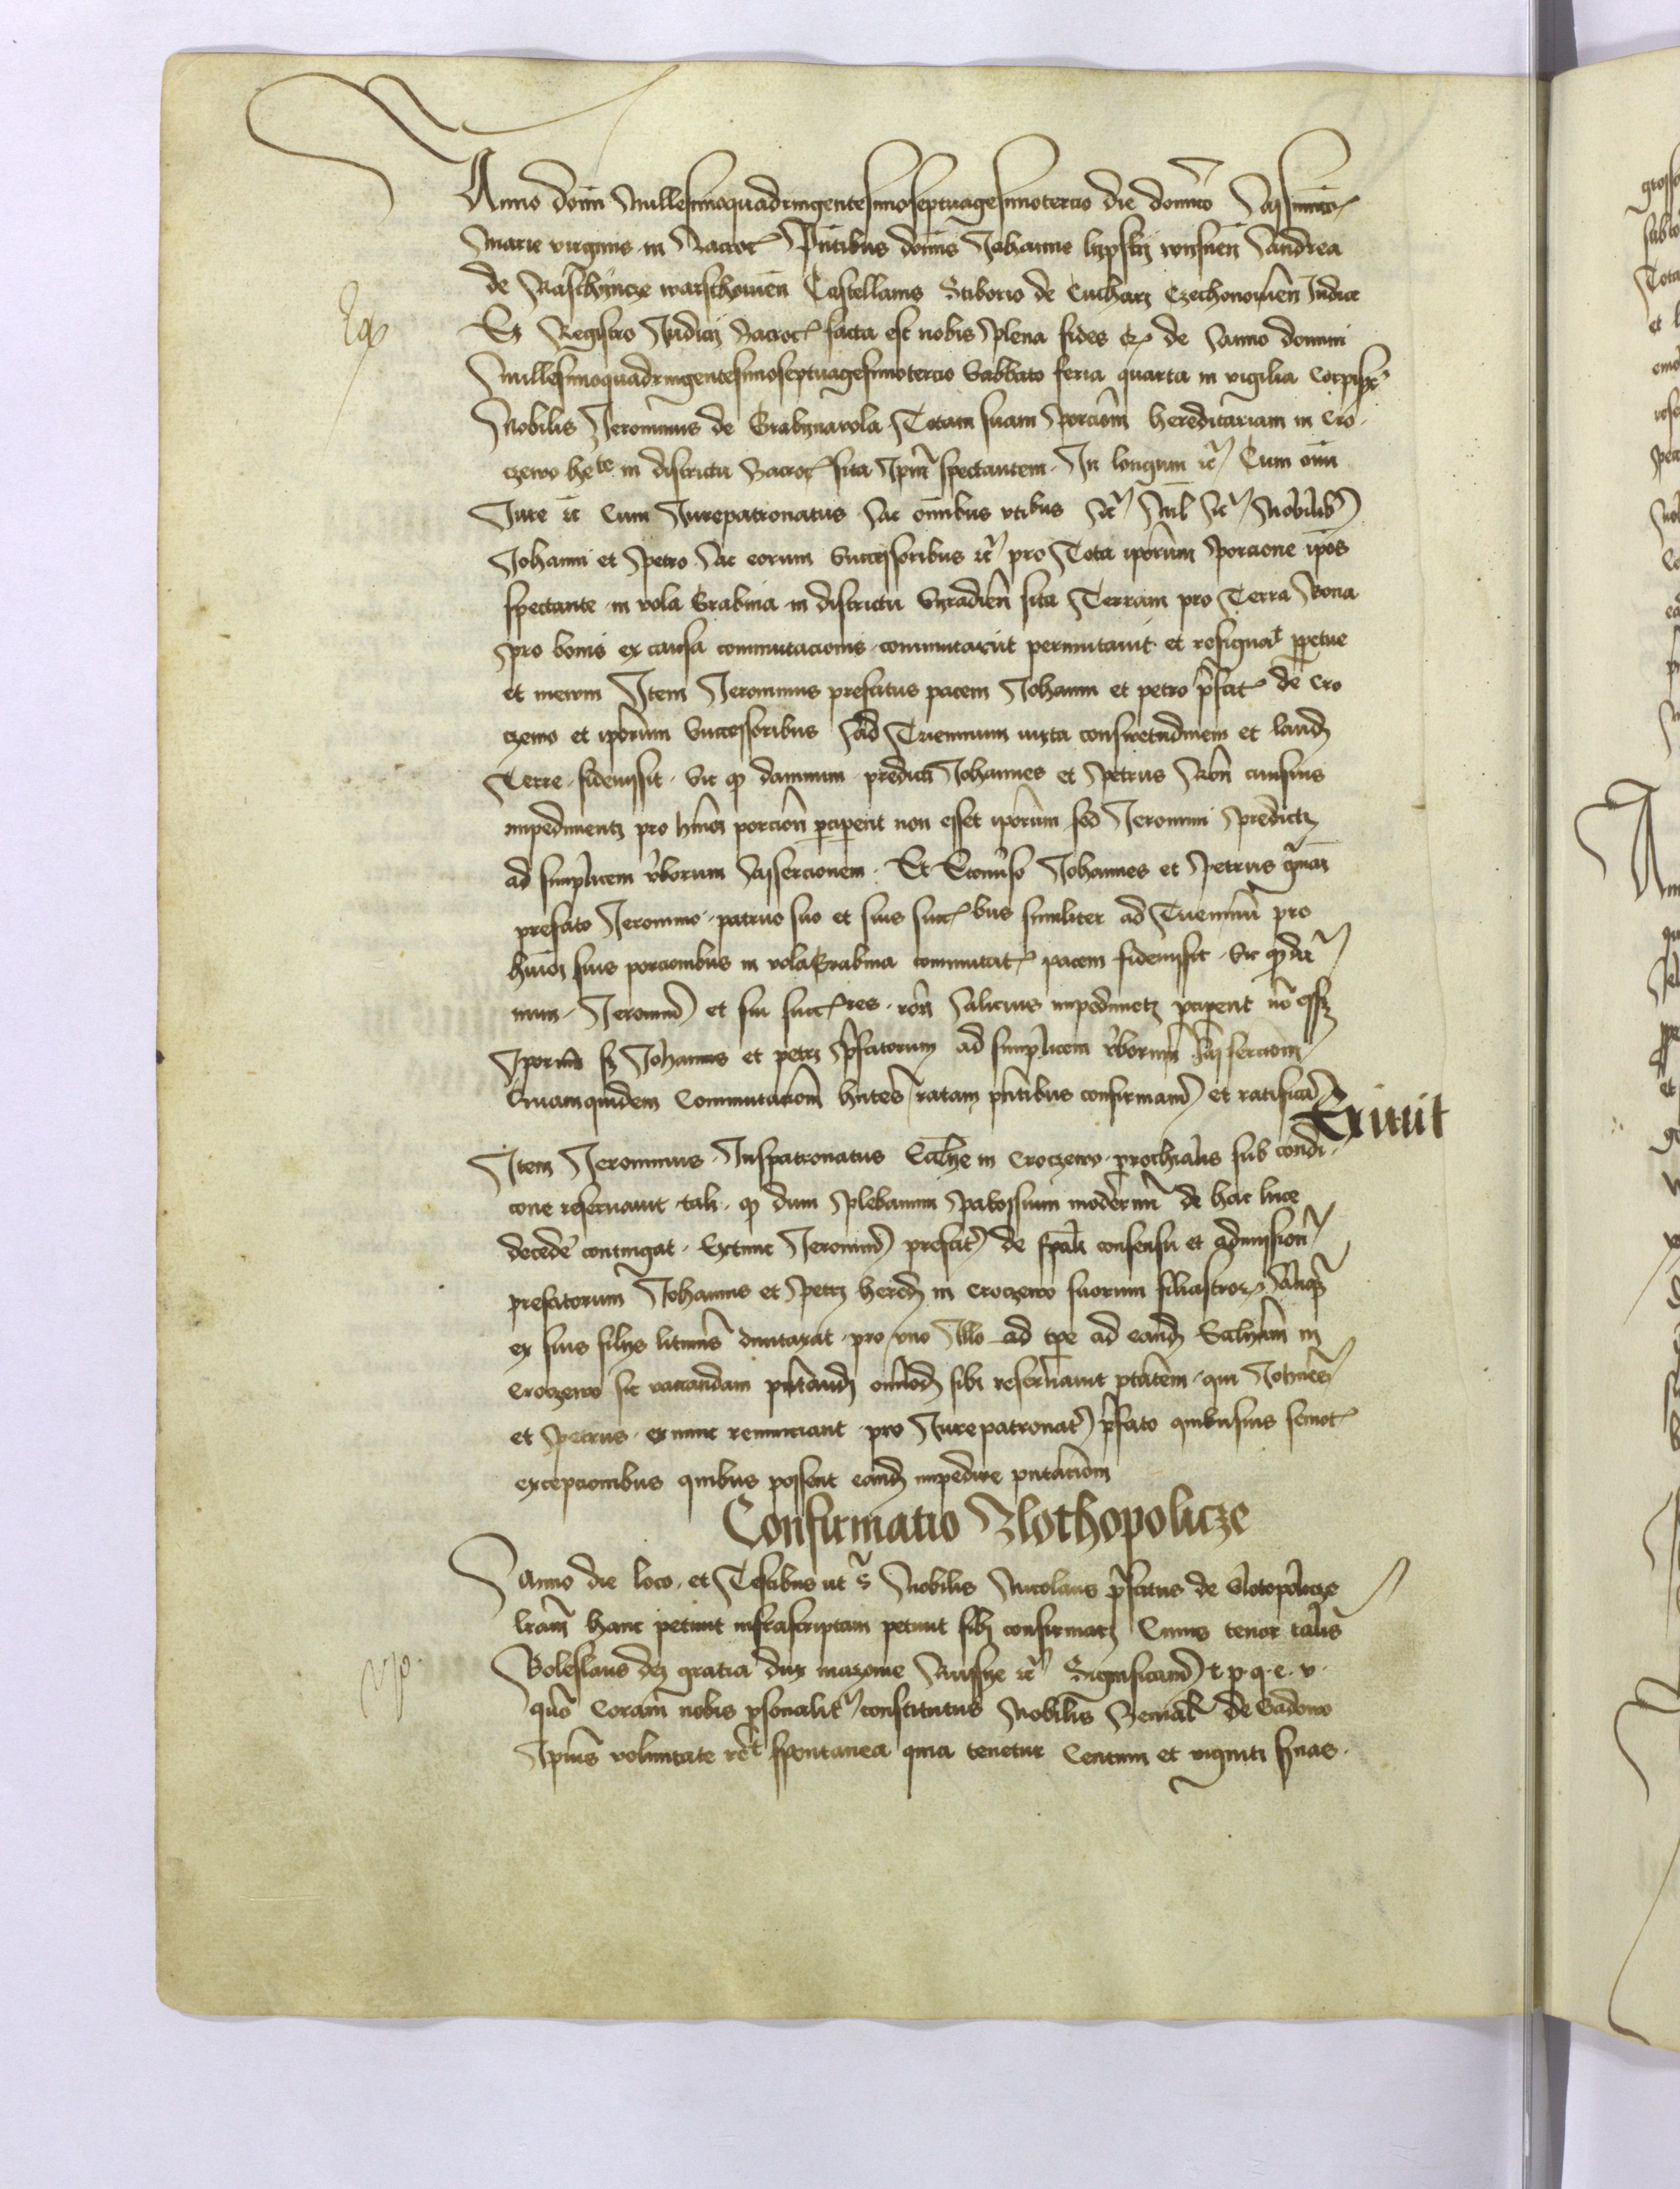 Anno domi Millesimoquadringentesimoseptuagesimotercio die domico Assumcio
Marie virginis in Zacrocz Pntibus domis Johanne lypsky wysnen Andrea
de Raschyncze warschouien Castellanis Stiborio de Cuchary Czechonouien Judice
Ex Registro Judicij Zacrocz facta est nobis plena fides etc de Anno domini
Millesimoquadringentesimoseptuagesimotercio Sabbato feria quarta in vigilia Corpis xpi
Nobilis Jeronimus de Grabynavola Totam suam porciom hereditariam in Cro
czewo in districtu Zacrocz sita Ipm spectantem In longum etc Cum omi
Jure etc Cum Jurepatronatus Ac omnibus vtibus etc Nil etc Nobilib
Johanni et Petro Ac eorum Successoribus etc pro Tota iporum porcione ipos
spectante in vola Grabina in districtu Syradien sita Terram pro Terra Bona
pro bonis ex causa commutacionis commutavit permutavit et resignat ppetue
et inewm Item Jeronimus prefatus pacem Johanni et petro pfat de Cro
czewo et iporum Successoribus Ad Triennium iuxta conswetudinem et laud
Terre fideiussit Sic q damnum predicti Johannes et Petrus Ron cuiusuis
impedimenti pro hmoi porcion pciperent non esset iporum sed Jeronimi predicti
ad simplicem vborum Assercionem Et Econuso Johannes et Petrus gmai
prefato Jeronimo patruo suo et suis succbus similiter ad Trienniu pro
hmoi suis porcionibus in vola Grabina commutat pacem fideiussit Sic q da
num Jeronim et sui succres ron Alicuius impedimeti pciperent no esset
Iporum sz Johannis et petri pfatorum ad simplicem vborum Assercionem
Quamquidem Commutaciom hntes ratam pntibus confirmam et ratificam
Exiuit
Item Jeronimus Juspatronatus Ecclie in Croczewo prochialis sub condi
cone reseruauit tali q dum plebanum modernu de hac luce
decede contingat Extunc Jeronim prefat de spali consensu et admission
prefatorum Johannis et Petri hered in Croczewo suorum filiastror Aliqz
ex suis filijs litimis duntaxat pro vno Illo ad tpe ad eand Eccliam in
Croczewo sic vaccandam pntand omod sibi reseruauit ptatem qui Johnes
et Petrus exnunc renunciant pro Jurepatronat pfato quibusuis semot
excepcionibus quibus possent eand impedire pntaciom
Confirmatio Zlothopolicze
Anno die loco et Testibus ut s Nobilis Nicolaus pfatus de Slotopolicze
lram hanc petiuit infrascriptam petiuit sibj confirmarj Cuius tenor talis
Boleslaus dej gratia dux mazouie Russye etc Significam t p q e v
quo Coram nobis psonalit constitutus Nobilis de Sadowo
Ipius voluntate rct spontanea quia tenetur Centum et viginti